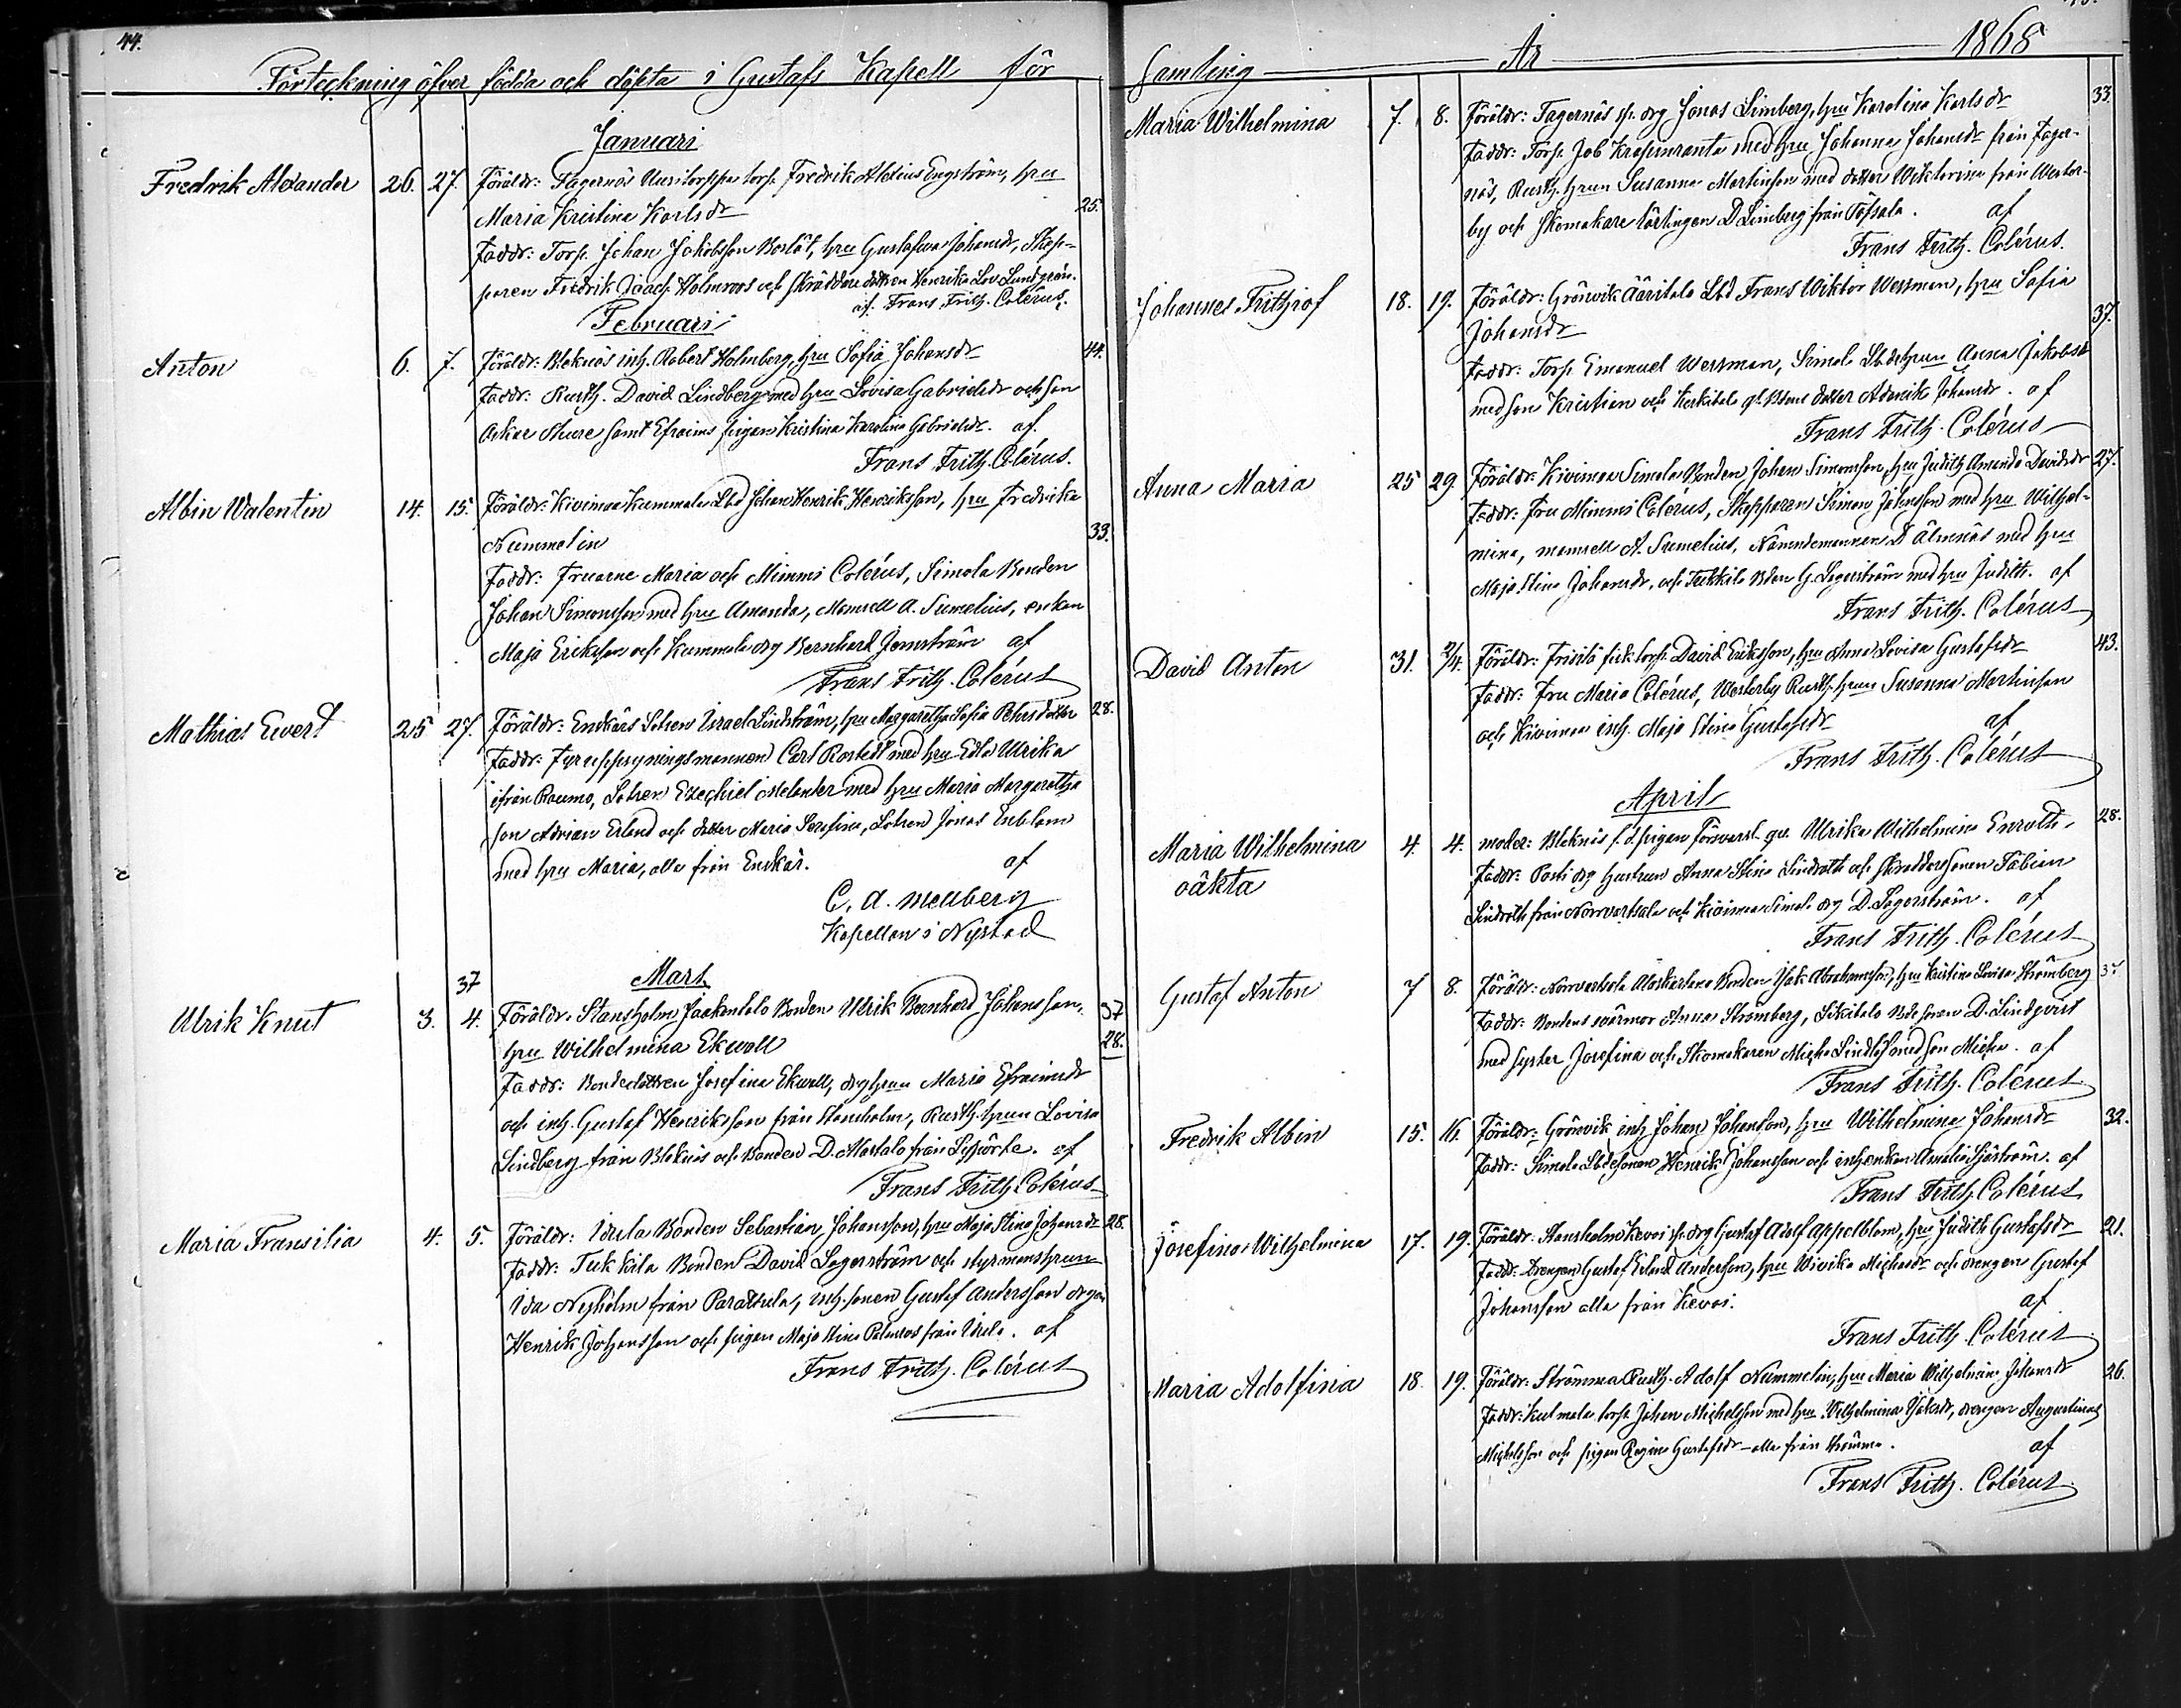 44.
Förteckning öfver födda och döpta i Gustafs Kapell för
Januari
Fredrik Alexander 26. 27. Föräldr: Fagernäs torp. Fredrik Alexius Engström, hru
Maria Kristina Karlsdr 25.
Faddr: Torp. Johan Jakobsson Boslöt, hru Gustafwa Johansdr, Skep-
paren Fredrik Isaac Holmroos och skräddare dottren Henrika Lov. Lundgrén.
af. Frans Frith. Colérus.
Februari
Anton 6. 7. Föräldr: Bleknäs inh. Robert Holmberg, hru Sofia Johansdr 44.
Faddr: Rusth. David Lindberg med hru Lovisa Gabrielsdr och son
Oskar Sture samt Efraims pigan Kristina Karolina Gabrielsdr. af.
Frans Frith. Colérus.
Albin Walentin 14. 15. Föräldr: Kivimaa Kummala Lbd Johan Henrik Henriksson, hru Fredrika
Nummelin 33.
Faddr: Fruarne Maria och Mimmi Colérus, Simola Bonden
Johan Simonsson med hru Amanda, Mamsell A. Sumelius, enkan
Maja Eriksson och Kummala drg Bernhard Jernström af
Frans Frith. Colérus
Mathias Evert 25 27. Föräldr: Enskärs Lotsen Israel Lindström, hru Margaretha Sofia Pehrsdotter 28.
Faddr: Fyruppsyningsmannen Carl Rostedt med hru Edla Ulrika
ifrån Raumo, Lotsen Ezechiel Melanter med hru Maria Margaretha
son Adrian Erland och dotter Maria Serafina, Lotsen Jonas Enblom
med hru Maria, alla från Enskär. af
C. A. Mellberg
Kapellan i Nystad
37 Mars
Ulrik Knut 3. 4. Föräldr. Stansholm Jaakentalo Bonden Ulrik Bernhard Johansson, 37
hru Wilhelmina Ekwall 28.
Faddr: Bondedottren Josefina Ekwall, drghrun Maria Efraimsdr
och inh. Gustaf Henriksson från Stansholm, Rusth.hrun Lovisa
Lindberg från Bleknäs och Bonden D. Alastalo från Lypörte. af
Frans Frith. Colérus
Maria Fransilia 4. 5. Föräldr: Isula Bonden Sebastian Johansson, hru Maja Stina Johansdr 28.
Faddr: Tukkila Bonden David Lagerström och styrmanshrun
Ida Nyholm från Parattula, inh.sonen Gustaf Andersson drgn
Henrik Johansson och pigan Maja Stina från Isula. af
Frans Frith. Colérus
Samling År 1868
Maria Wilhelmina 7. 8. Föräldr: Fagernäs sp. drg Jonas Limberg, hru Karolina Karlsdr 33.
Faddr: Torp. Job Kraspuranta med hru Johanna Johansdr från Fager-
näs, Rusth.hrun Susanna Martinsson med dotter Wiktorina från Wester-
by och Skomakare lärlingen D Limberg från Töfsala. af
Frans Frith. Colérus.
Johannes Frithjof 18. 19. Föräldr: Grönvik Ääritalo Lbd Frans Wiktor Wessman, hru Sofia
Johansdr 37.
Faddr: Torp. Emanuel Wessman, Simola Lbdshrun Anna Jakobsdr
med son Kristian och Keskitalo gl. Bdens dotter Adamik Johansdr. af
Frans Frith. Colérus
Anna Maria 25 29 Föräldr: Kivimaa Simola Bonden Johan Simonsson, hru Judith Amanda Davidsdr 27.
Faddr: Fru Mimmi Colérus, Skepparen Simon Johansson med hru Wilhel-
mina, mamsell A. Sumelius, Nämndemannen D Älmnäs med hru
Maja Stina Johansdr, och Tukkila Bden G. Lagerström med hru Judith. af
Frans Frith. Colérus
David Anton 31. 2/4. Föräldr: Friisilä fisk torp. David Eriksson, hru Anna Lovisa Gustafsdr 43.
Faddr: Fru Maria Colérus, Westerby Rusth.hrun Susanna Martinson
och Kivimaa inh. Maja Stina Gustafsdr af
Frans Frith. Colérus
April
Maria Wilhelmina 4. 4. moder: Bleknäs f.d. pigan Försvarsl. qv. Ulrika Wilhelmina Enroth. 28.
oäkta Faddr: Posti drg hustrun Anna Stina Lindroth och Skräddaresonen Fabian
Lindroth från Norrvartsala och Kivimaa Simola drg D. Lagerström. af
Frans Frith. Colérus
Gustaf Anton 7 8. Föräldr: Norrvartsala Bonden Isak Abrahamsson, hru Kristina Lovisa Strömberg
Faddr: Bondens svärmor Anna Strömberg, Sikitalo Bdesonen D. Lindqvist
med syster Josefina och Skomakaren Micke Lindlöf med son Micke. af
Frans Frith. Colérus
Fredrik Albin 15. 16. Föräldr: Grönvik inh Johan Johansson, hru Wilhelmina Johansdr 32.
Faddr: Simola Lbdesonen Henrik Johansson och inhenkan Amalia Sjöström. af
Frans Frith. Colérus
Josefina Wilhelmina 17. 19. Föräldr: Stansholm Kevoi sp. drg Gustaf Adolf Appelblom, hru Judith Gustafsdr 21.
Faddr. Drengen Gustaf Erland Andersson, hru Wivika Michelsdr och drengen Gustaf
Johansson alla från Kevoi. af
Frans Frith. Colérus
Maria Adolfina 18. 19. Föräldr: Strömma Rusth. Adolf Nummelin, hru Maria Wilhelmina Johansdr 26.
Faddr: Kulmala torp. Johan Michelsson med hru Wilhelmina Isaksdr, drengen Augustinus
Michelsson och pigan Regina Gustafsdr - alla från Strömma. af
Frans Frith. Colérus